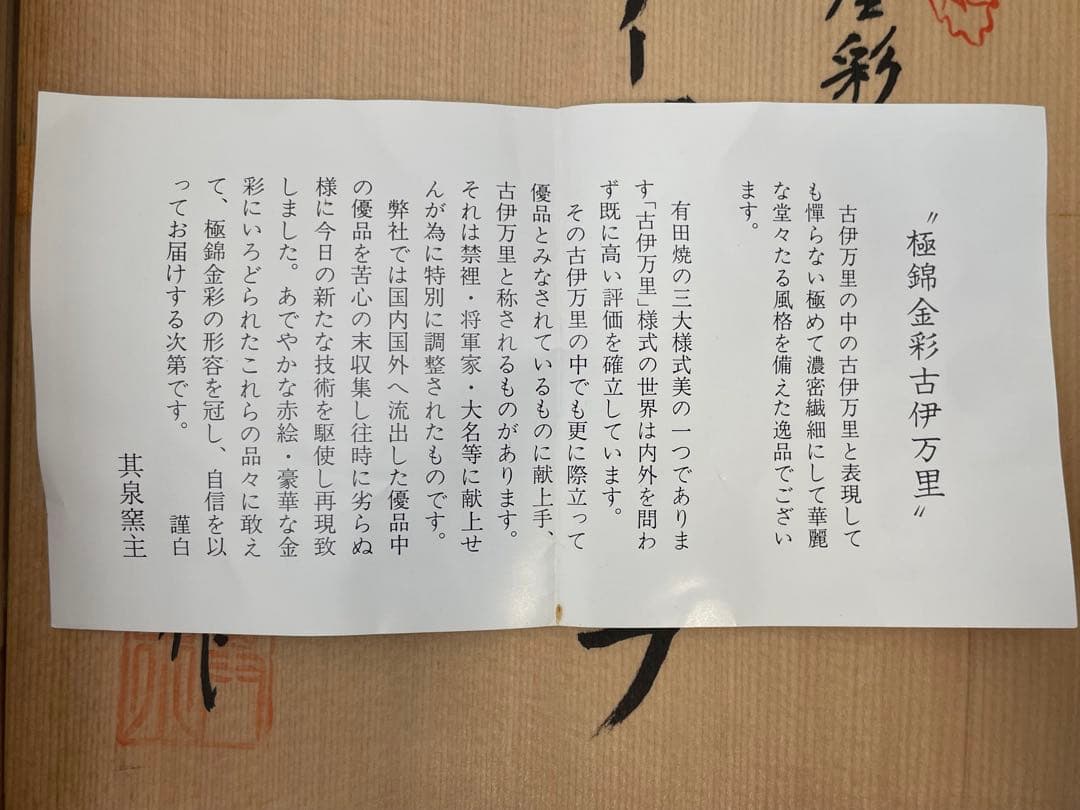 〝極錦金彩古伊万里〟
古伊万里の中の古伊万里と表現して
も憚らない極めて濃密繊細にして華麗
な堂々たる風格を備えた逸品でござい
ます。
有田焼の三大様式美の一つでありま
す「古伊万里」様式の世界は内外を問わ
ず既に高い評価を確立しています。
その古伊万里の中でも更に際立って
優品とみなされているものに献上手、
古伊万里と称されるものがあります。
それは禁裡・将軍家・大名等に献上せ
んが為に特別に調整されたものです。
弊社では国内国外へ流出した優品中
の優品を苦心の末収集し往時に劣らぬ
様に今日の新たな技術を駆使し再現致
しました。あでやかな赤絵・豪華な金
彩にいろどられたこれらの品々に敢え
て、極錦金彩の形容を冠し、自信を以
ってお届けする次第です。
謹白
其泉窯主
彩